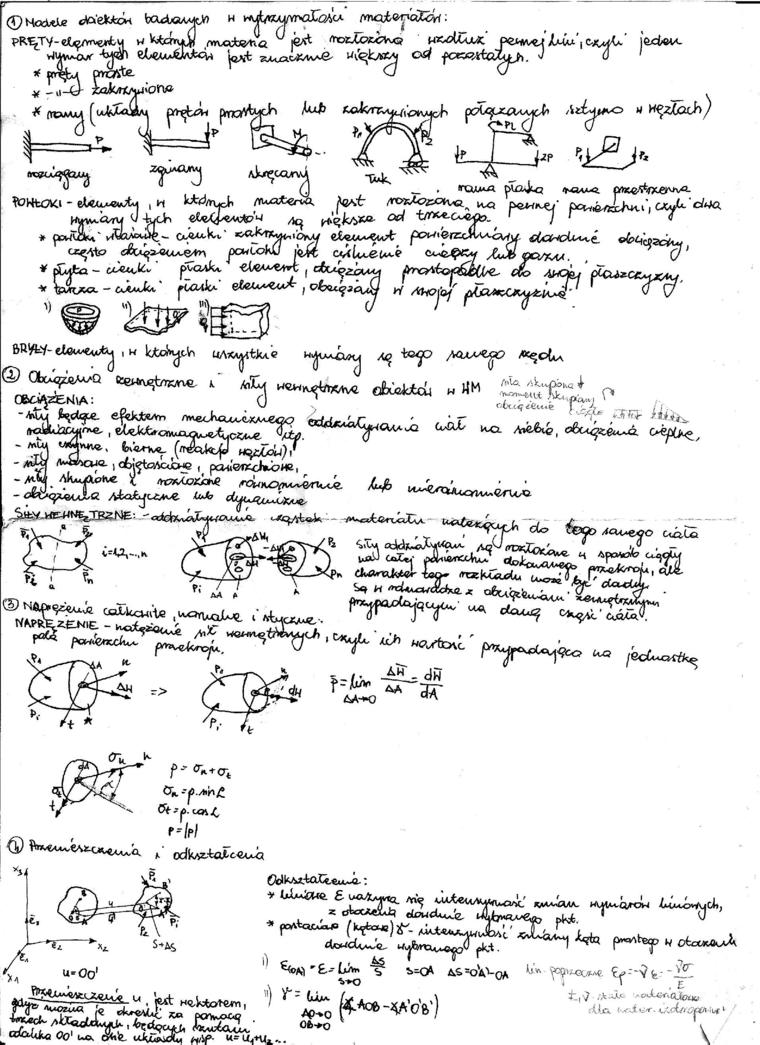 ① Modele obiektów badanych w wytrzymałości materiałów:
PRĘTY-elementy w których materia jest rozłożona wzdłuż pewnej linii, czyli jeden
wymiar tych elementów jest znacznie większy od pozostałych.
* pręty proste
* -"- zakrzywione
* ramy (układy prętów prostych lub zakrzywionych połączonych sztywno w węzłach)
P P M P₁ P₂ PL P 2P P₁ P₂
rozciągany zginany skręcany Łuk rama płaska rama przestrzenna
POWŁOKI-elementy, w których materia jest rozłożona na pewnej powierzchni, czyli dwa
wymiary tych elementów są większe od trzeciego.
* powłoki właściwe-cienki zakrzywiony element powierzchniowy dowolnie obciążony,
często obciążeniem powłoki jest ciśnienie cieczy lub gazu.
* płyta-cienki płaski element, obciążany prostopadle do swojej płaszczyzny.
* tarcza-cienki płaski element, obciążany w swojej płaszczyźnie.
i) P ii) q iii) q
BRYŁY-elementy, w których wszystkie wymiary są tego samego rzędu
② Obciążenia zewnętrzne i siły wewnętrzne obiektów w WM
siła skupiona
moment skupiony
obciążenie ciągłe
OBCIĄŻENIA:
-siły będące efektem mechanicznego oddziaływania ciał na siebie, obciążenia cieplne,
radiacyjne, elektromagnetyczne itp.
-siły czynne, bierne (reakcje węzłów),
-siły masowe, objętościowe, powierzchniowe,
-siły skupione i rozłożone równomiernie lub nierównomiernie
-obciążenia statyczne lub dynamiczne
SIŁY WEWNĘTRZNE: -oddziaływanie cząstek materiału należących do tego samego ciała
i=1,2,...,n
siły oddziaływań są rozłożone w sposób ciągły
na całej powierzchni dokonanego przekroju, ale
charakter tego rozkładu może być dowolny.
Są w równowadze z obciążeniami zewnętrznymi
przypadającymi na daną część ciała.
③ Naprężenie całkowite, normalne i styczne.
NAPRĘŻENIE-natężenie sił wewnętrznych, czyli ich wartość przypadająca na jednostkę
pola powierzchni przekroju.
P₁ Pᵢ ΔA n ΔW t A => P₁ Pᵢ n dW t
p̄=lim ΔW̄/ΔA = dW̄/dA
ΔA→0
dA σₙ n σₜ t α
p=σₙ+σₜ
σₙ=p·sinα
σₜ=p·cosα
p=|p|
④ Przemieszczenia i odkształcenia
Odkształcenie:
* liniowe ε nazywa się intensywność zmian wymiarów liniowych,
z otoczenia dowolnie wybranego pkt.
* postaciowe (kątowe) γ-intensywność zmiany kąta prostego w otoczeniu
dowolnie wybranego pkt.
i) ε(OA)=ε=lim ΔS/S S=OA ΔS=O'A'-OA lin. poprzeczne εp=-νε=-νσ/E
S→0
E,ν-stałe materiałowe
dla mater. izotropowych
ii) γ=lim (∡AOB-∡A'O'B')
AO→0
OB→0
u=OO'
Przemieszczenie u, jest wektorem,
gdyż można je określić za pomocą
trzech składowych, będących rzutami
odcinka OO' na osie układu np. u=u₁+u₂...